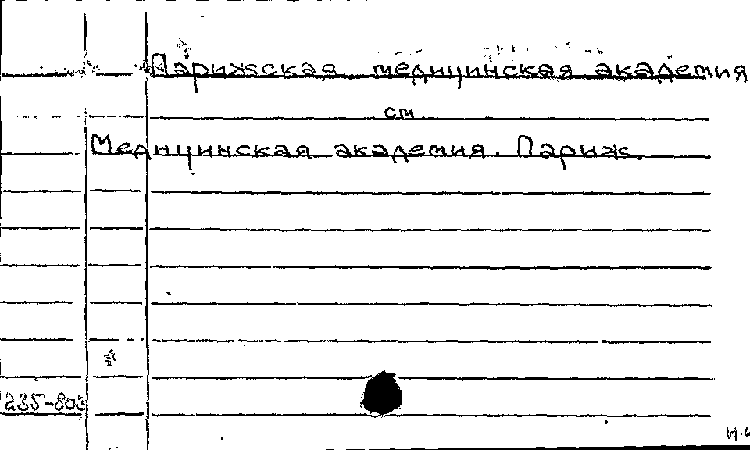 Парижская медицинская академия
см
Медицинская академия. Париж.
235-803